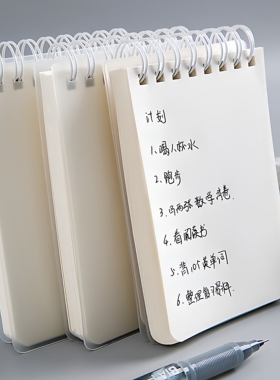 计划
1、喝八杯水
2、跑步
3、写两张数学卷
4、看阅读书
5、背105英单词
6、整理自习资料